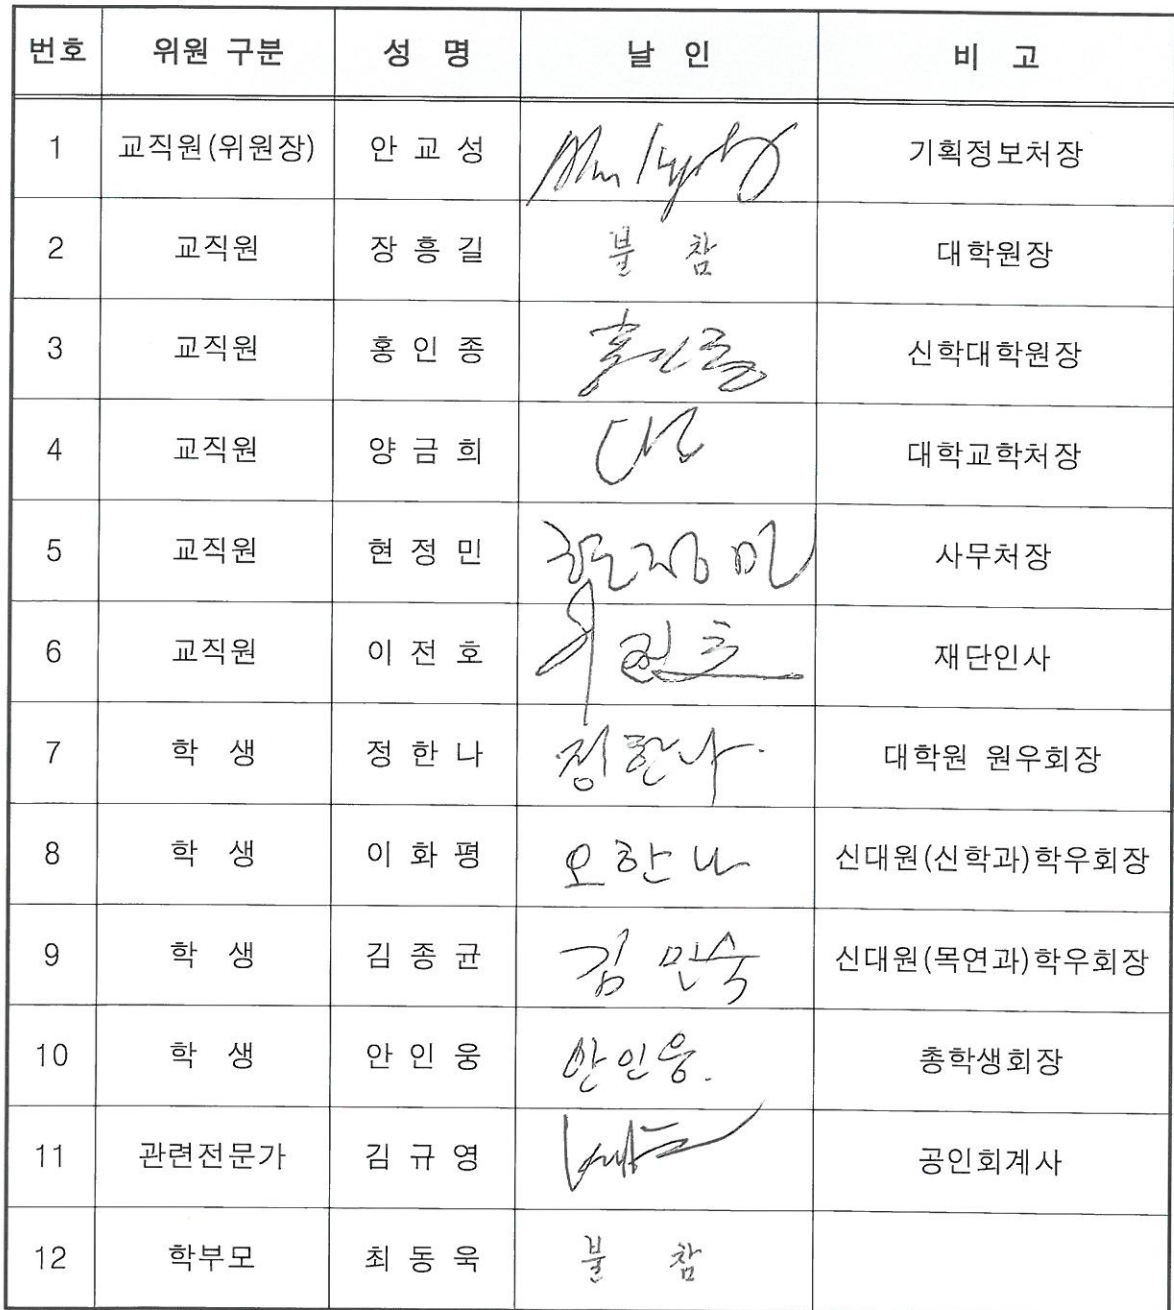 번호 위원 구분 성 명 날 인 비 고
1 교직원(위원장) 안 교 성 기획정보처장
2 교직원 장 흥 길 불 참 대학원장
3 교직원 홍 인 종 홍인종 신학대학원장
4 교직원 양 금 희 대학교학처장
5 교직원 현 정 민 현정민 사무처장
6 교직원 이 전 호 이전호 재단인사
7 학 생 정 한 나 정한나 대학원 원우회장
8 학 생 이 화 평 오한나 신대원(신학과)학우회장
9 학 생 김 종 균 김민숙 신대원(목연과)학우회장
10 학 생 안 인 웅 안인웅. 총학생회장
11 관련전문가 김 규 영 공인회계사
12 학부모 최 동 욱 불 참